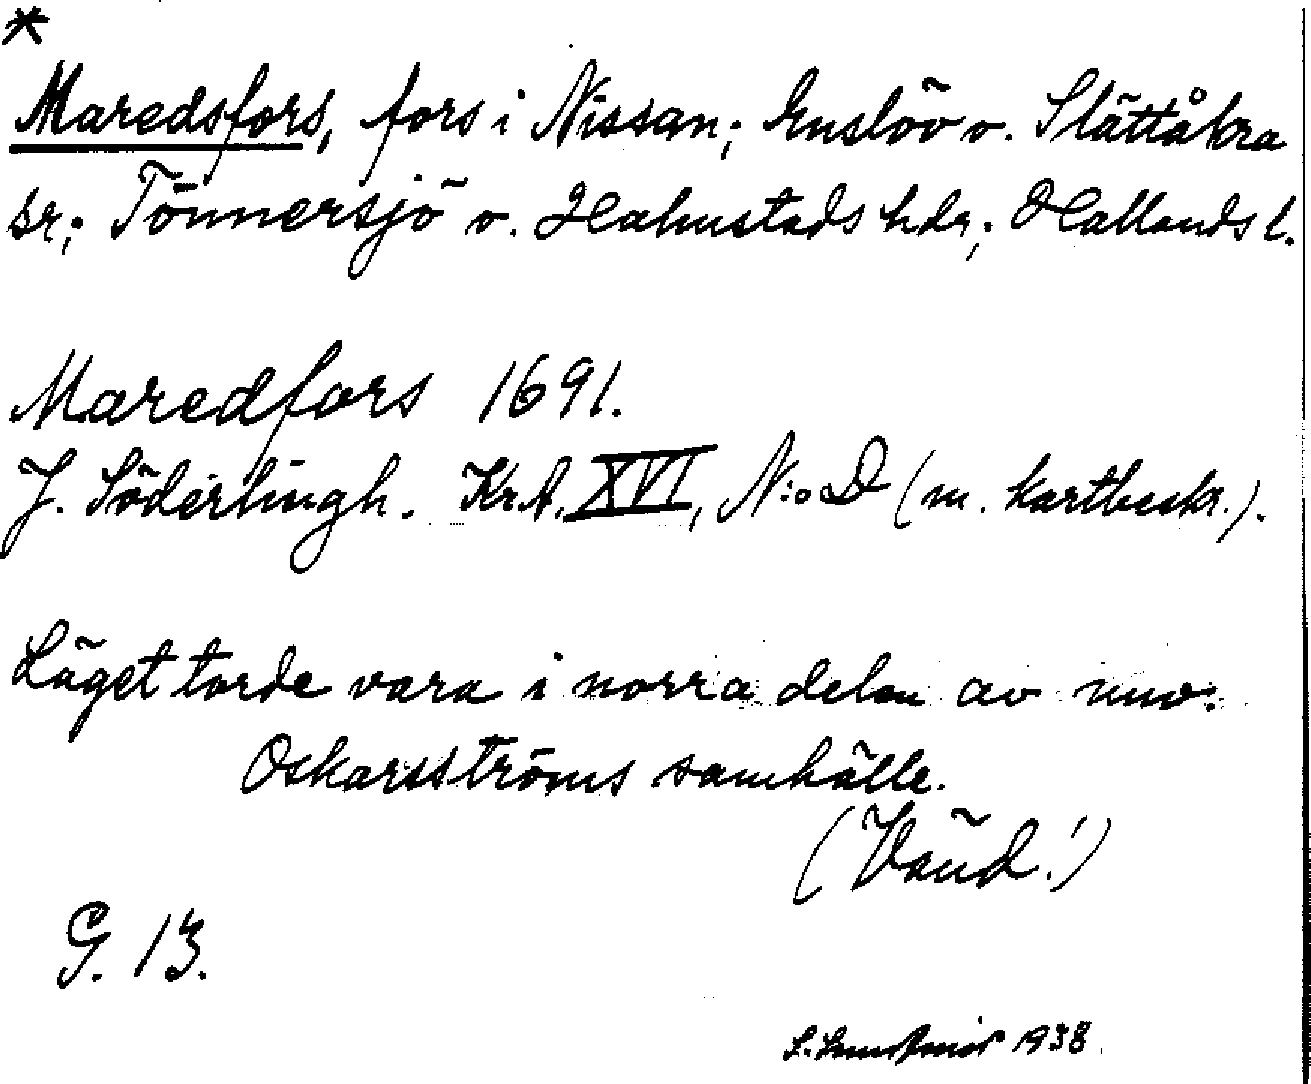 *
Maredsfors, fors i Nissan; Enslöv o. Slättåkra
sr; Tönnersjö o. Halmstads hdr; Hallands l.
Maredfors 1691.
J. Söderlingh. Kr.A. XVI, N:o D (m. kartbeskr.).
Läget torde vara i norra delen av nuv.
Oskarsströms samhälle.
(Vänd!)
G. 13.
1938